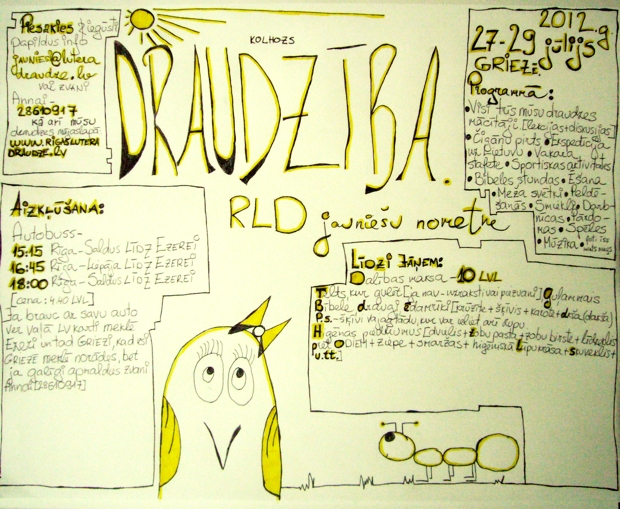 Piesakies & iegūsti
papildus info
jaunies@lutera
draudze.lv
vai zvani
Annai-
28610917
kā arī mūsu
draudzes mājaslapā:
WWW.RIGASLUTERA
DRAUDZE.LV
KOLHOZS
DRAUDZĪBA.
RLD jauniešu nometne
2012.g.
27-29 jūlijs
GRIEZE.
Programmā:
• Visi trīs mūsu draudzes
mācītāji [lekcijas+diskusijas]
• Čigānu pirts • Ekspedīcija
uz Lietuvu • Vakara
stafete • Sportiskas aktivitātes
• Bībeles stundas • Ēšana
• Meža svētki • Peldē-
šanās • Smiekli • Darb-
nīcas • Pārdo-
mas • Spēles
• Mūzika •
AIZKĻŪŠANA:
Autobuss-
15:15 Rīga-Saldus LĪDZ EZEREI
16:45 Rīga-Liepāja LĪDZ EZEREI
18:00 Rīga-Saldus LĪDZ EZEREI
[cena: 4.40 LVL]
Ja brauc ar savu auto
ver vaļā LV karti meklē
Ezeri un tad GRIEZI, kad esi
GRIEZĒ meklē norādus, bet
ja galīgi apmaldies zvani
Annai [28610917]
LĪDZI JĀŅEM:
Dalības maksa - 10 LVL
Telts, kur gulēt [ja nav - uzraksti vai piezvani] gulammais
Bībele draugi ēdamrīki [krūzīte + šķīvis + karote + drēbes
P.s. - šķīvi vajag tādu, kur var ieliet arī zupu.
Higiēnas piederumus [dvielis + zobu pasta + zobu birste + līdzeklis
pret ODIEM + ziepe + smaržas + higiēniskā lūpu krāsa +
u.tt.]